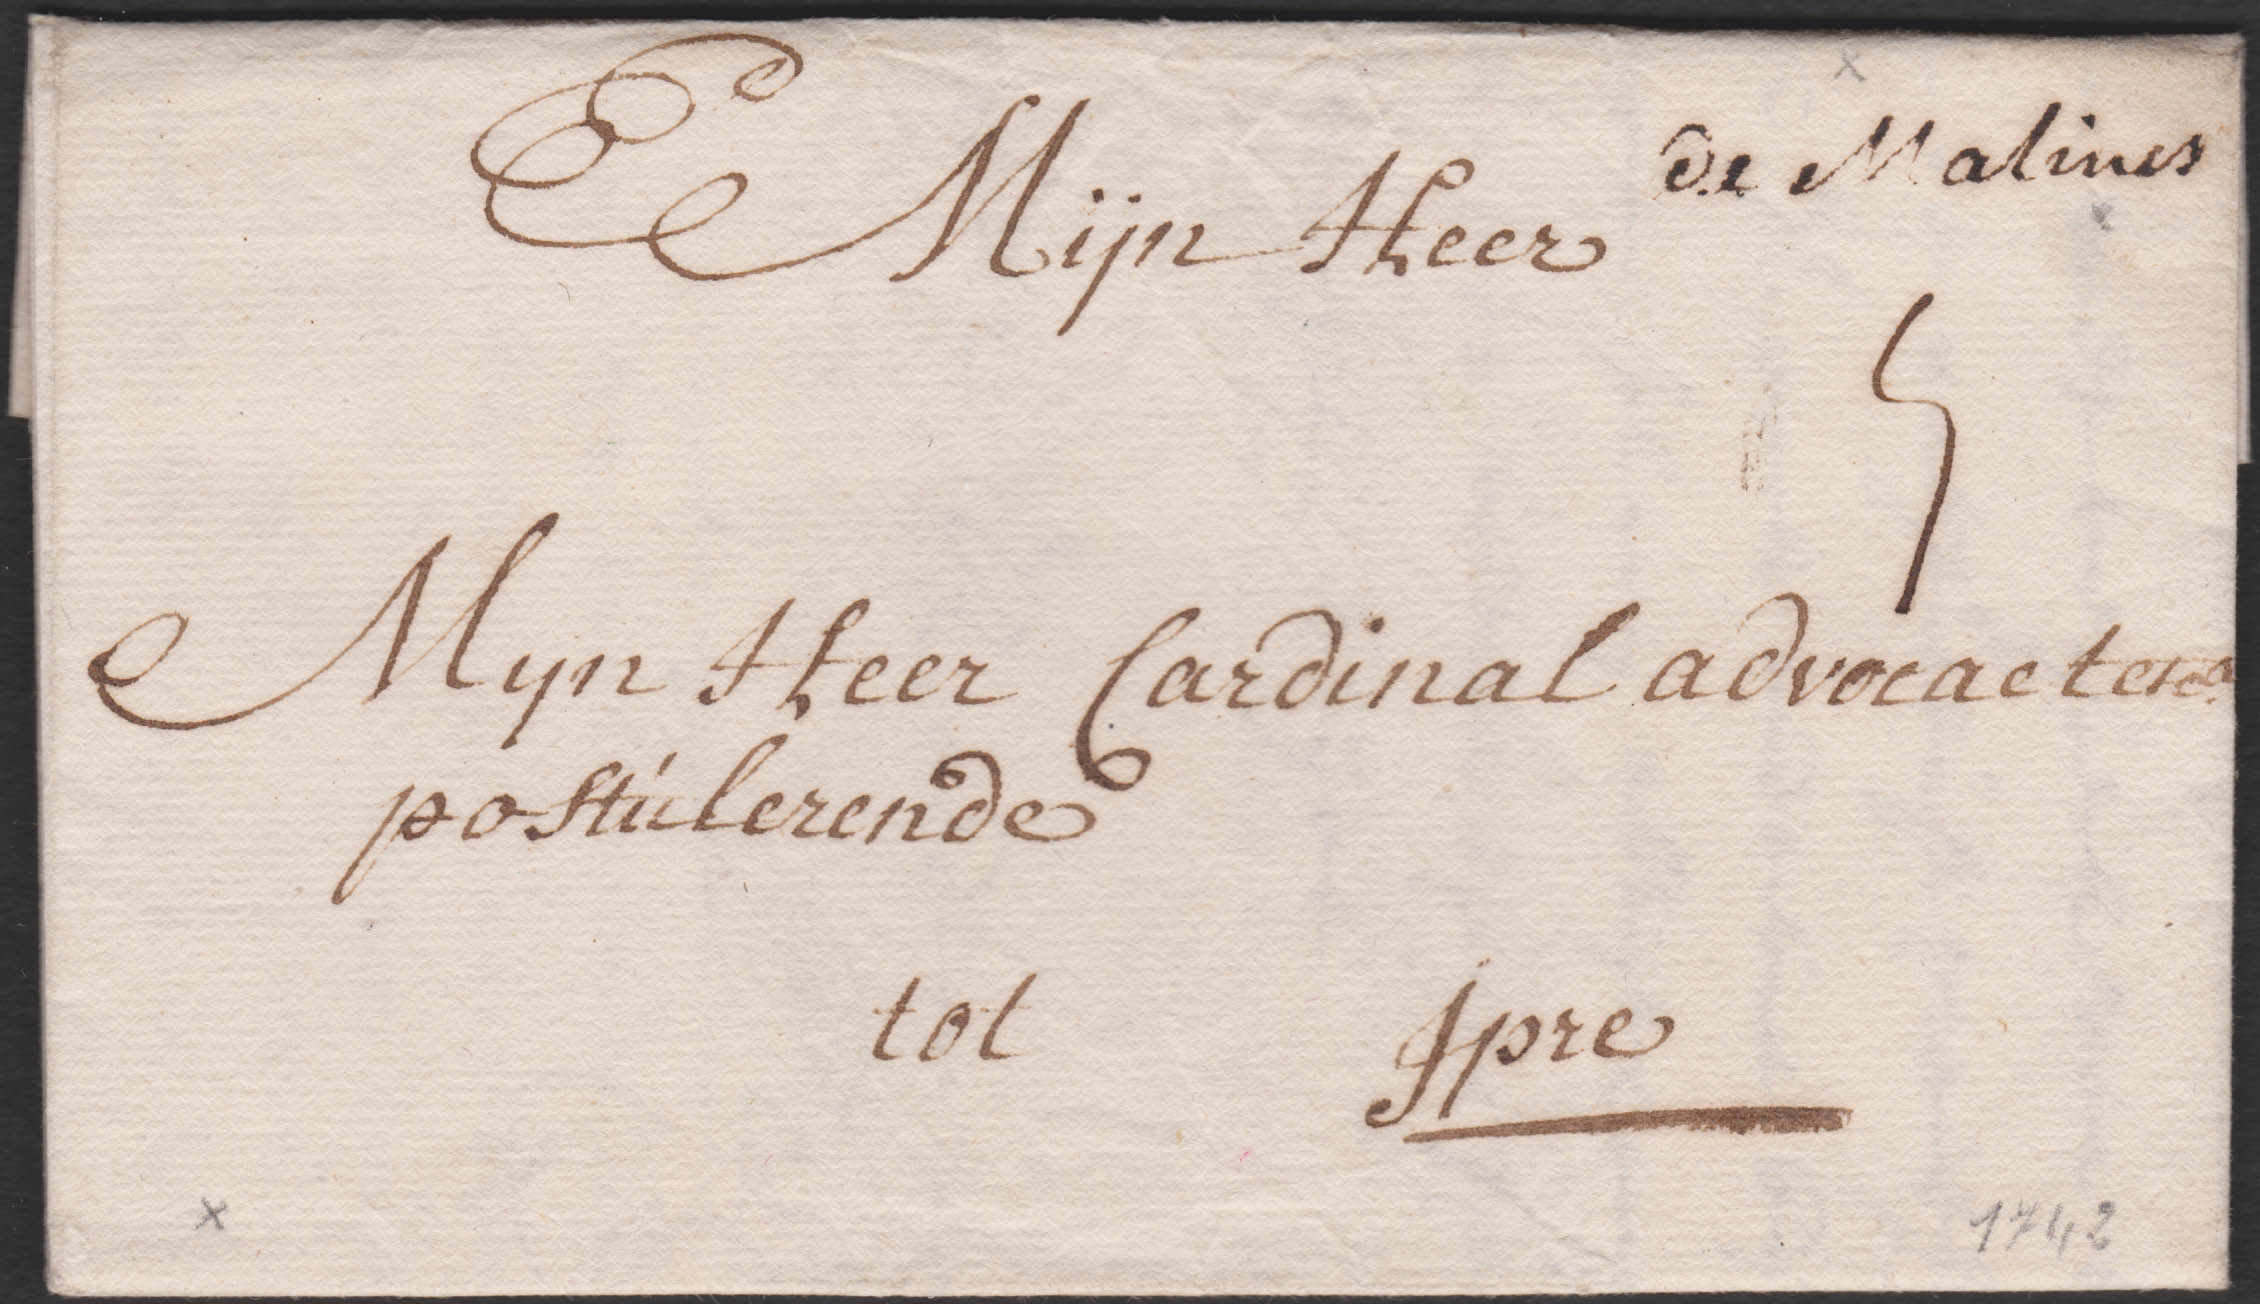 de Malines
Mijn Heer
5
Myn Heer Cardinal advocaet
postulerende
tot Ipre
1742